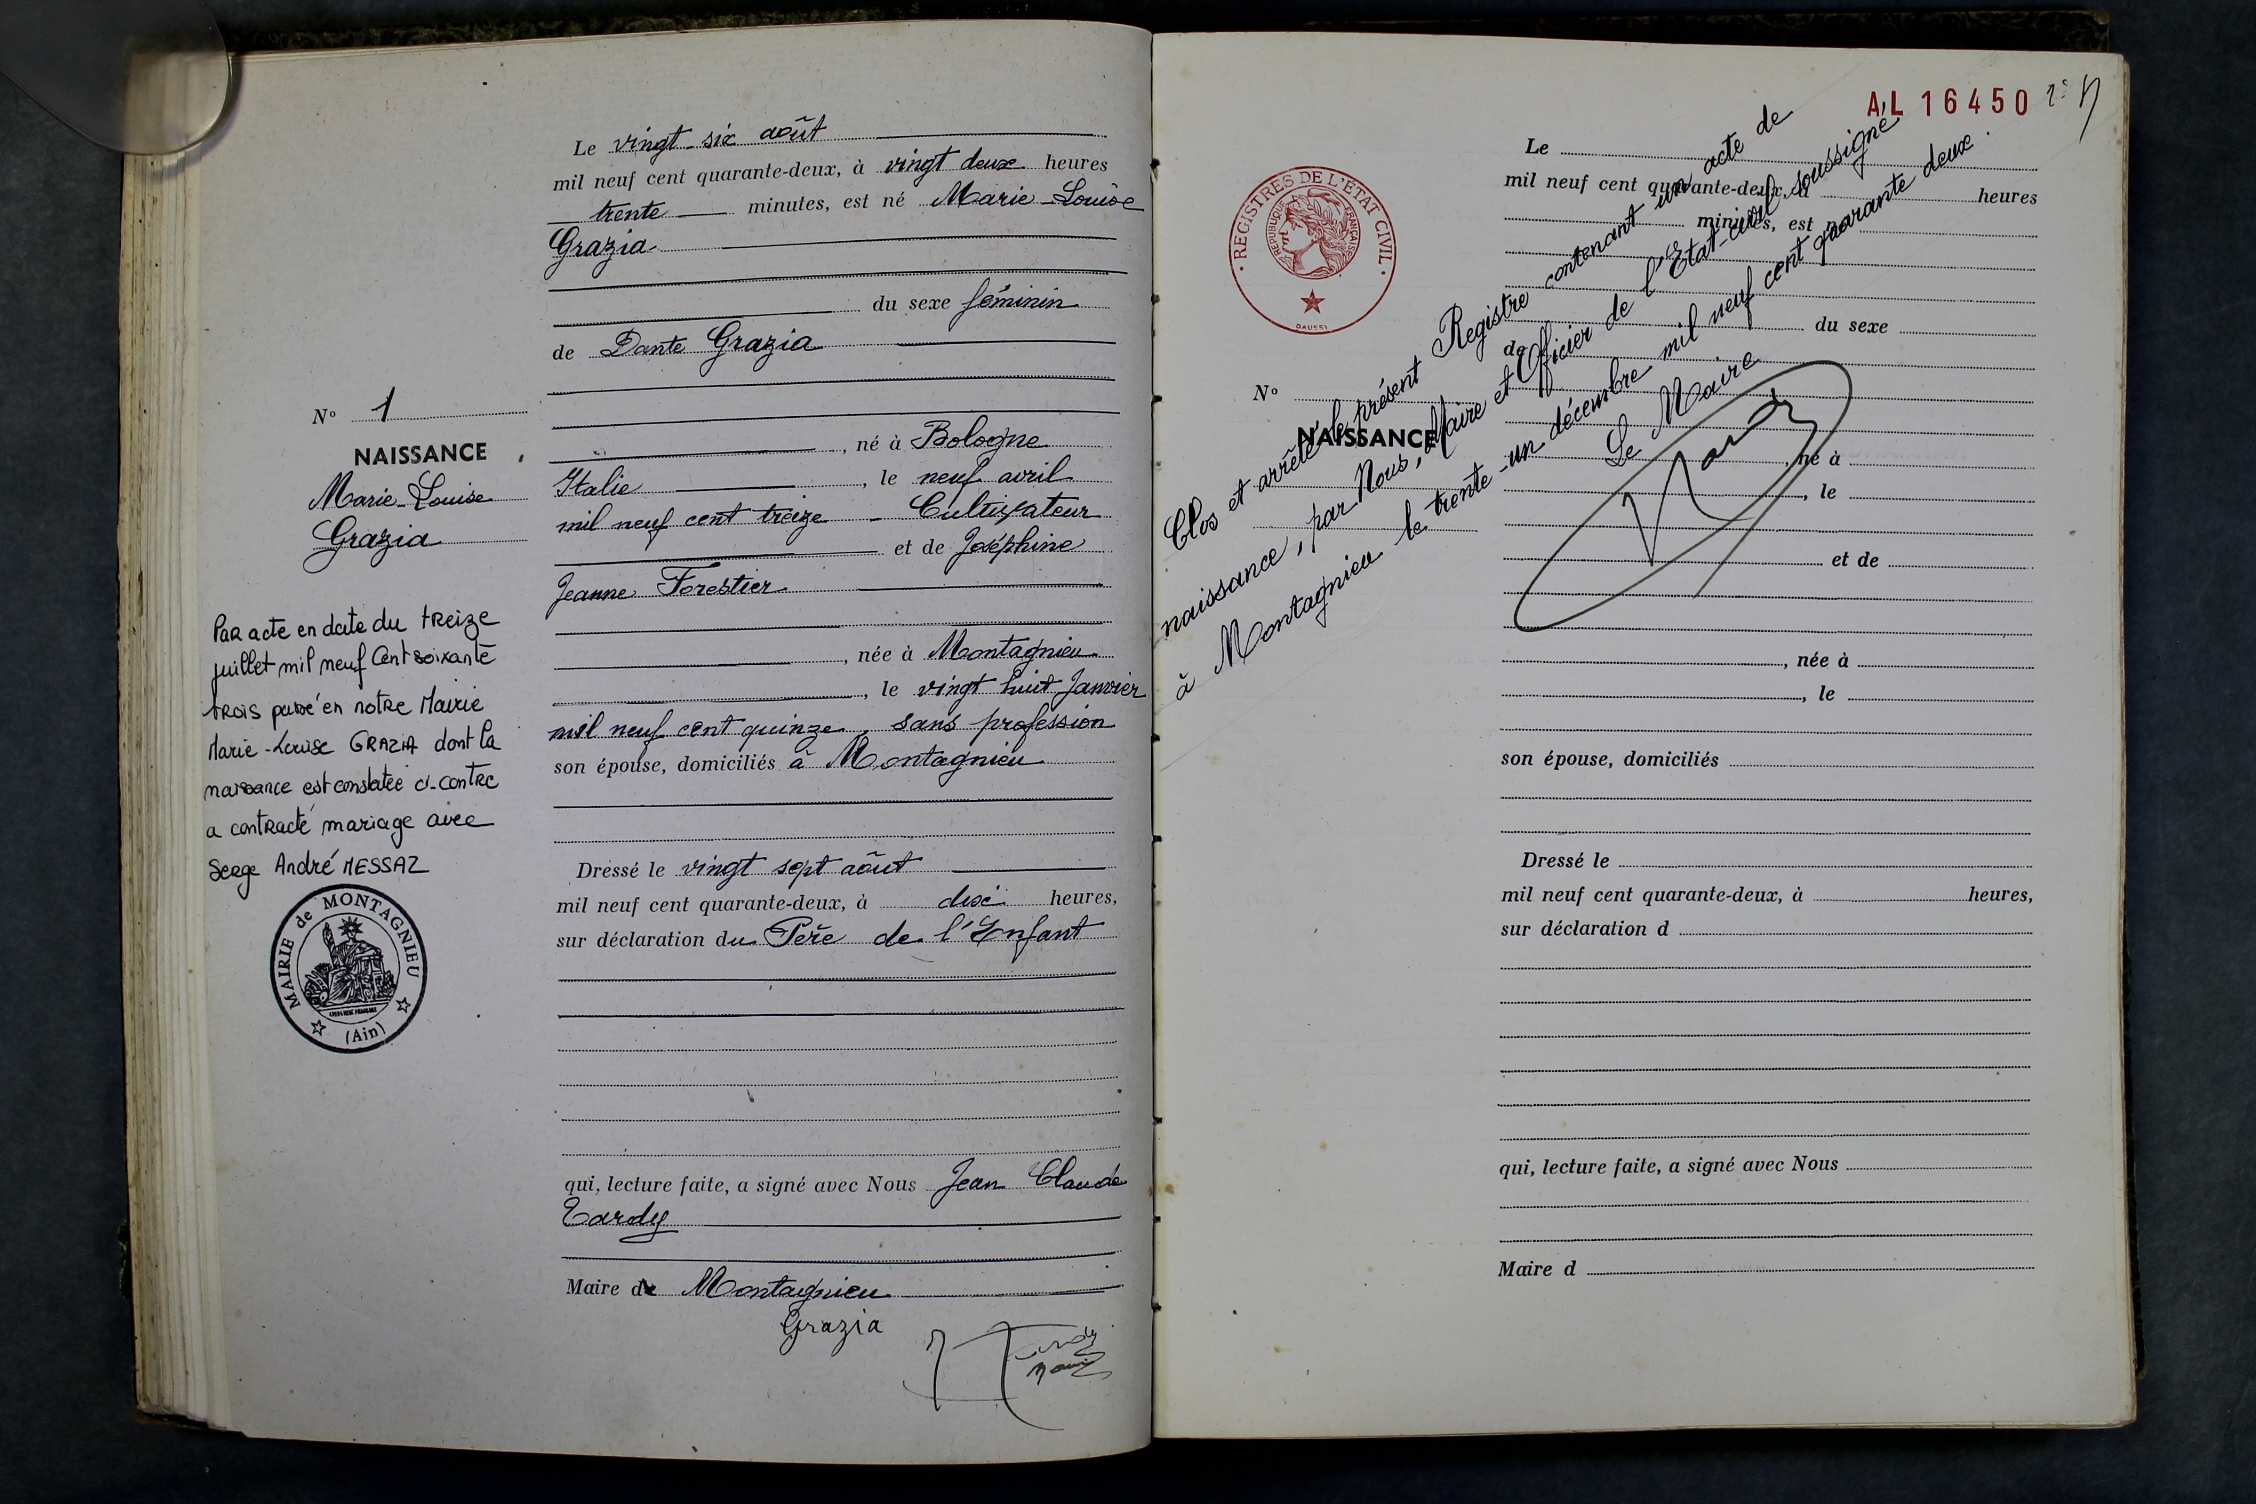 Le vingt-six août
mil neuf cent quarante-deux, à vingt deux heures
trente minutes, est né Marie-Louise
Grazia
du sexe féminin
de Dante Grazia
, né à Bologne
Italie , le neuf avril
mil neuf cent treize - Cultivateur
et de Joséphine
Jeanne Forestier
, née à Montagnieu
, le vingt huit Janvier
mil neuf cent quinze, sans profession
son épouse, domiciliés à Montagnieu
Dressé le vingt sept août
mil neuf cent quarante-deux, à dix heures,
sur déclaration du Père de l'Enfant
qui, lecture faite, a signé avec Nous Jean Claude
Tardy
Maire de Montagnieu
Grazia
No 1
NAISSANCE
Marie-Louise
Grazia
Par acte en date du treize
juillet mil neuf Cent soixante
trois passé en notre Mairie
Marie-Louise GRAZIA dont la
naissance est constatée ci-contre
a contracté mariage avec
Serge André MESSAZ
MAIRIE de MONTAGNIEU
(Ain)
AL 16450
REGISTRES DE L'ETAT CIVIL
REPUBLIQUE FRANÇAISE
Le
mil neuf cent quarante-deux, à heures
minutes, est né
du sexe
de
No
NAISSANCE
, né à
, le
et de
, née à
, le
son épouse, domiciliés
Dressé le
mil neuf cent quarante-deux, à heures,
sur déclaration d
qui, lecture faite, a signé avec Nous
Maire d
Clos et arrêté le présent Registre contenant un acte de
naissance, par Nous, Maire et Officier de l'Etat-civil, soussigné
à Montagnieu le trente-un décembre mil neuf cent quarante deux.
Le Maire